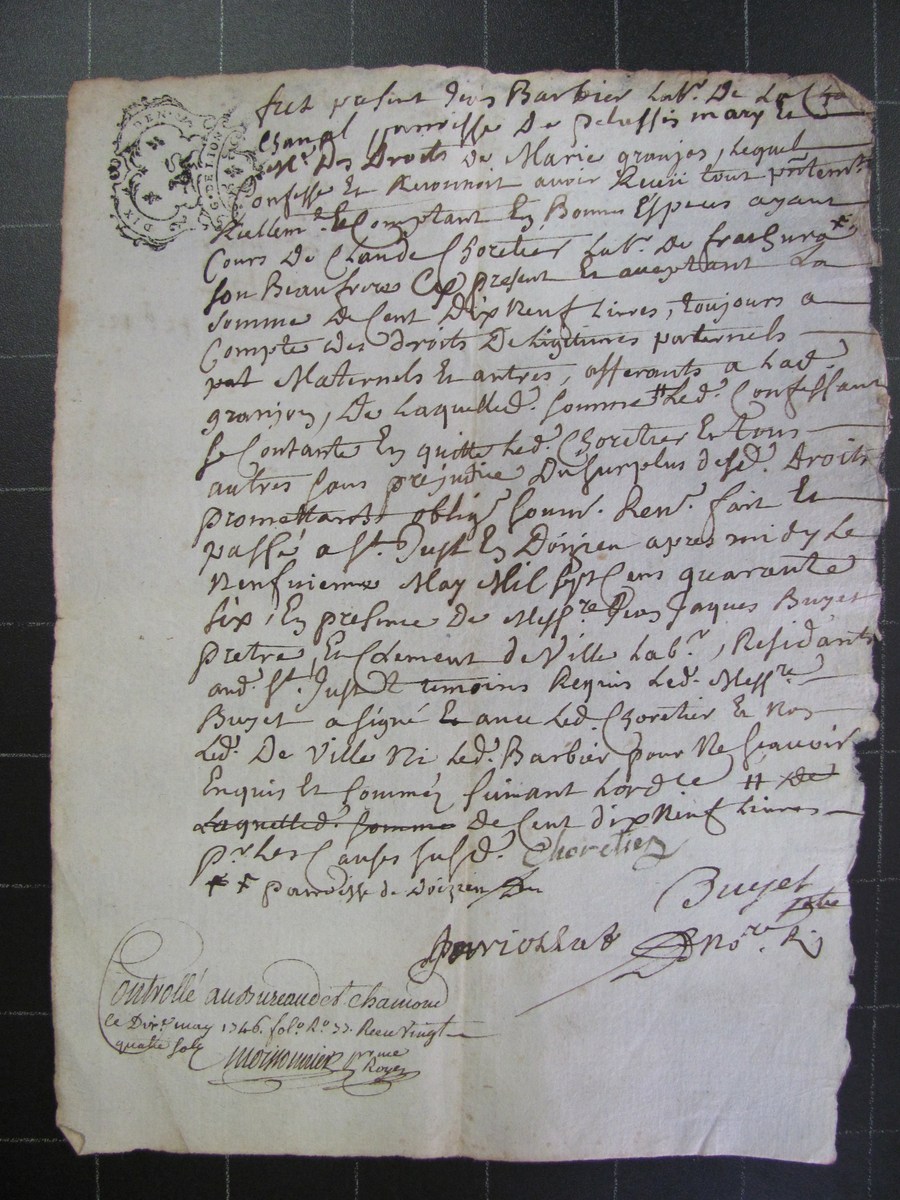 fut présent Jean Barbier Labr. De La
Chanal paroisse De pelussis mary Et
Mr. Des Droits De Marie granjon, Lequel
Confesse Et Reconnoit avoir Receu tout présentemt.
Réellemt. Et Comptant En Bonnes Especes ayant
Cours De Claude Choretier Labr. De
Son Beaufrere Cy present Et aceptant La
Somme De Cent Dix Neuf Livres, toujours a
Compte des droits De Legitimes paternels
pat Maternels Et autres, afferants a Lad.
granjon, De Laquelled. Somme # Led. Confessant
Se Contante En quitte Led. Choretier Et tous
autres Sans préjudice Du Surplus desd. Droits
promettants obligt. Soumr. Renr. fait Et
passé a St. Just En Doizien apres midy Le
Neufvieme May Mil Sept Cens quarante
Six, En presence De Messre. Jean Jaques Buyet
pretre, Et Clement de Ville Labr., Residants
aud. St. Just temoins Requis Led. Messre.
Buyet a signé Et avec Led. Choretier Et Non
Led. De Ville Ni Led. Barbier pour Ne Scavoir
Enquis Et Sommés Suivant Lordce # De
Laquelled. Somme De Cent dix Neuf Livres
pr. Les Causes Susd. Choretier
** paroisse de Doizieu
Buyet
ptre
Nore. R.
Controllé au Bureau de St. Chamond
Le Dix may 1746. fol. Ro. 33. Receu vingt
quatre sols
DIX DEN
GEN DE LION